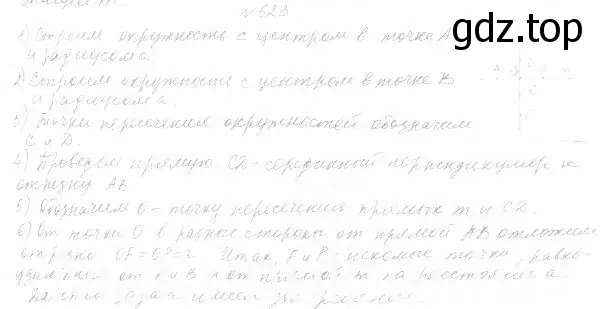 № 623
1) Строим окружность с центром в точке A
и радиусом a
gdz.top
2) Строим окружность с центром в точке B
и радиусом a.
3) Точки пересечения окружностей обозначим
C и D.
4) Проведем прямую CD - серединный перпендикуляр к
отрезку AB
5) Обозначим O - точку пересечения прямых m и CD.
6) От точки O в разные стороны от прямой AB отложим
отрезки Итак, F и P - искомые точки, равно-
от A и B и от прямой m на расстояние a.
задача имеет два